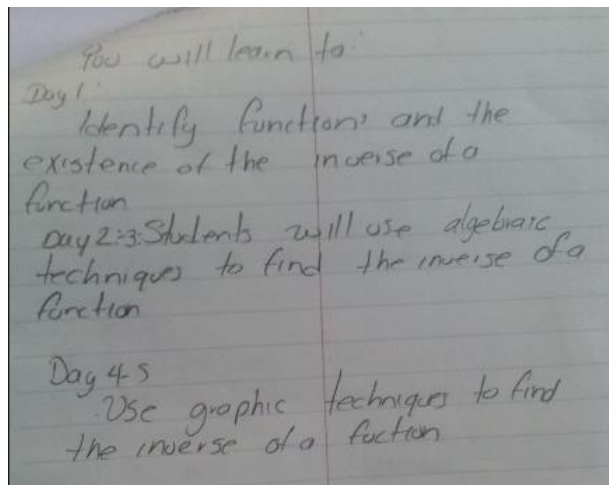 You will learn to:
Day 1:
Identify functions and the
existence of the inverse of a
function
Day 2-3: Students will use algebraic
techniques to find the inverse of a
function
Day 4-5
Use graphic techniques to find
the inverse of a fuction